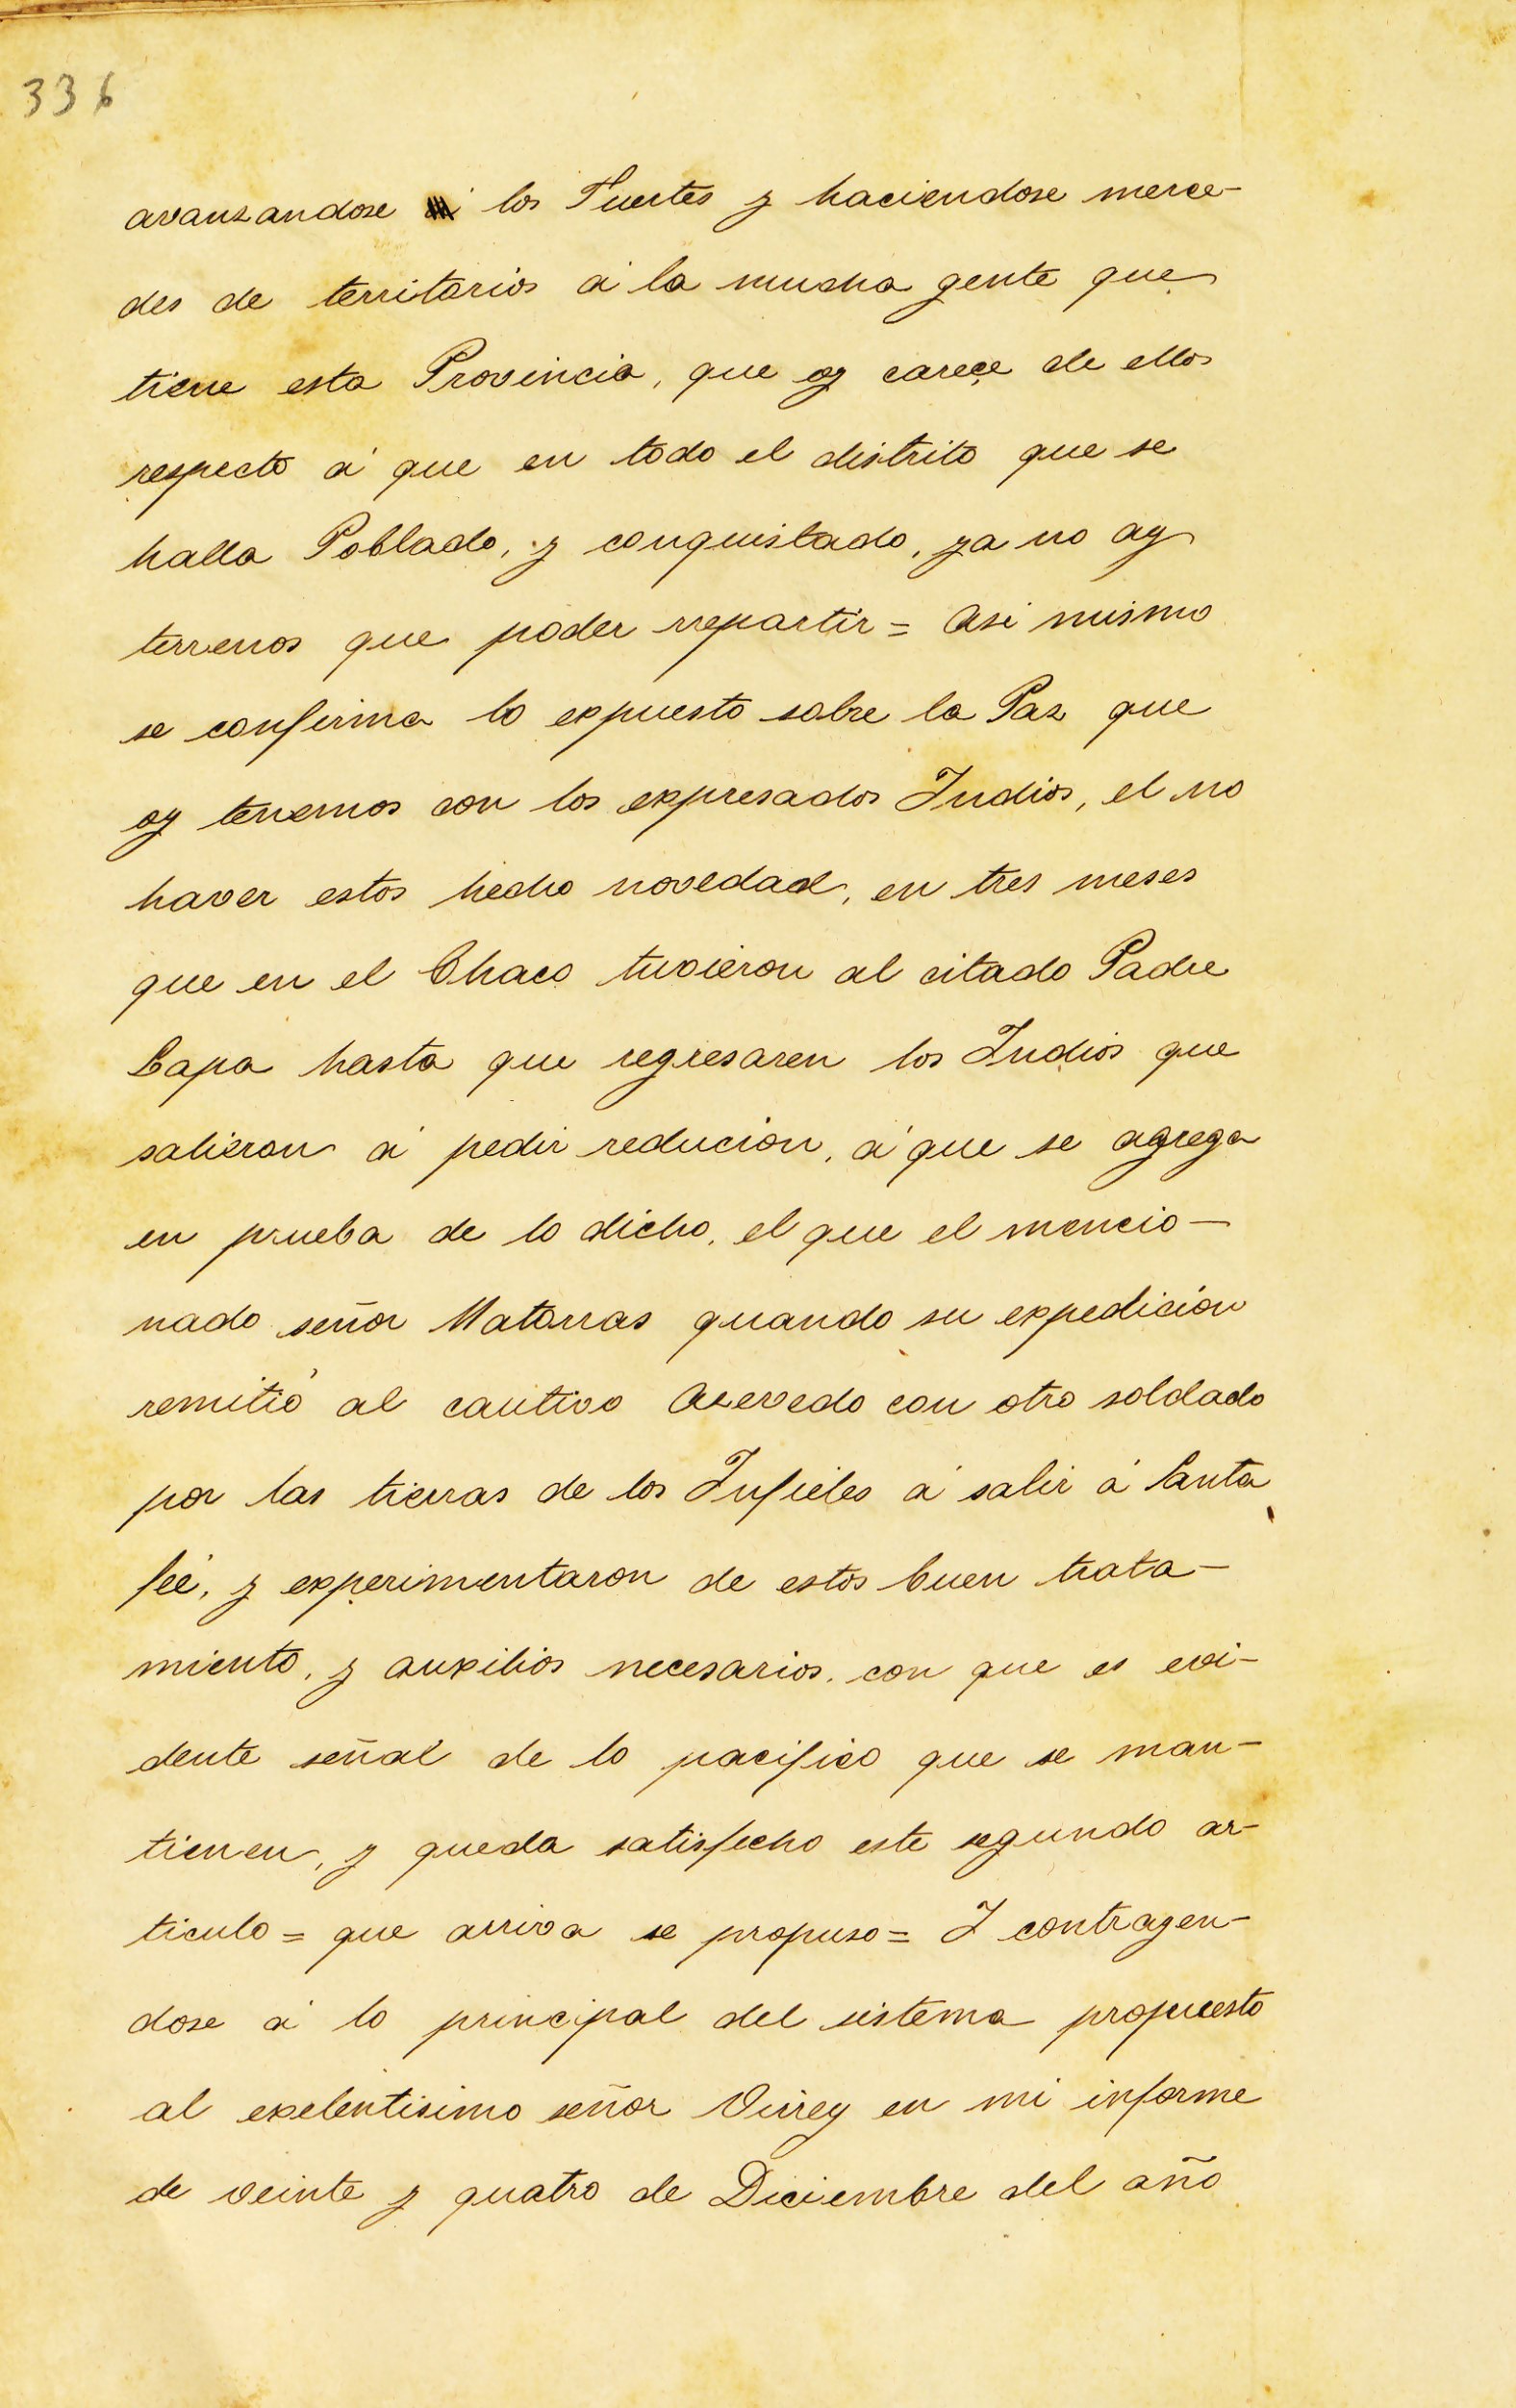 336
avanzandose los Fuertes y haciendose merce-
des de territorios á la mucha gente que
tiene esta Provincia, que oy careçe de ellos
respecto á que en todo el distrito que se
halla Poblado, y conquistado, ya no ay
terrenos que poder rrepartir = Asi mismo
se confirma lo expuesto sobre la Paz que
oy tenemos con los expresados Indios, el no
haver estos hecho novedad, en tres meses
que en el Chaco tuvieron al citado Padre
Lapa hasta que regresaren los Indios que
salieron á pedir reducion, á que se agrega
en prueba de lo dicho, el que el mencio-
nado señor Matorras quando su expedicion
remitió al cautivo Acevedo con otro soldado
por las tierras de los Infieles á salir á Santa
feé, y experimentaron de estos buen trata-
miento, y auxilios necesarios, con que es evi-
dente señal de lo pacifico que se man-
tienen, y queda satisfecho este segundo ar-
ticulo = que arriva se propuso = I contragen-
dose á lo principal del sistema propuesto
al exelentisimo señor Virrey en mi informe
de veinte y quatro de Diciembre del año